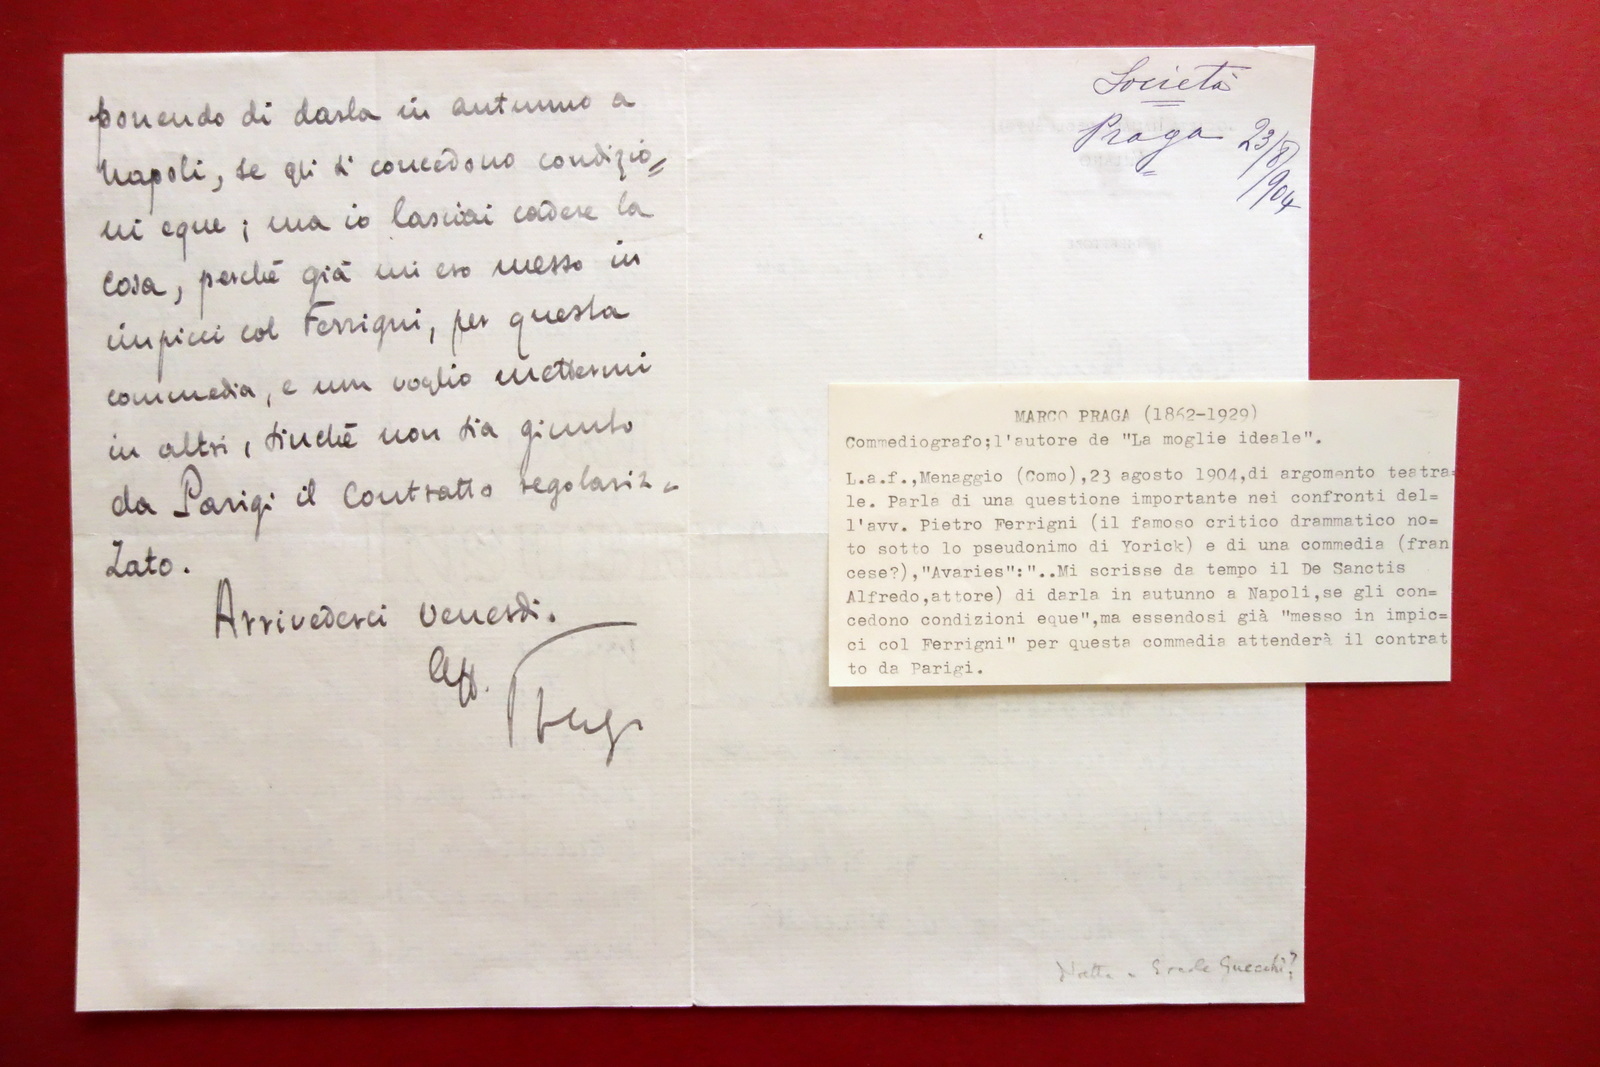 ponendo di darla in autunno a
Napoli, se gli si concedono condizio=
ni eque; ma io lasciai cadere la
cosa, perchè già mi ero messo in
impicci col Ferrigni, per questa
commedia, e non voglio mettermi
in altri, finchè non sia giunto
da Parigi il Contratto regolariz-
zato.
Arrivederci venerdì.
Aff.
Praga
Società
Praga 23/8/904
MARCO PRAGA (1862-1929)
Commediografo;l'autore de "La moglie ideale".
L.a.f.,Menaggio (Como),23 agosto 1904,di argomento teatra=
le. Parla di una questione importante nei confronti del=
l'avv. Pietro Ferrigni (il famoso critico drammatico no=
to sotto lo pseudonimo di Yorick) e di una commedia (fran
cese?),"Avaries":"..Mi scrisse da tempo il De Sanctis
Alfredo,attore) di darla in autunno a Napoli,se gli con=
cedono condizioni eque",ma essendosi già "messo in impic=
ci col Ferrigni" per questa commedia attenderà il contrat
to da Parigi.